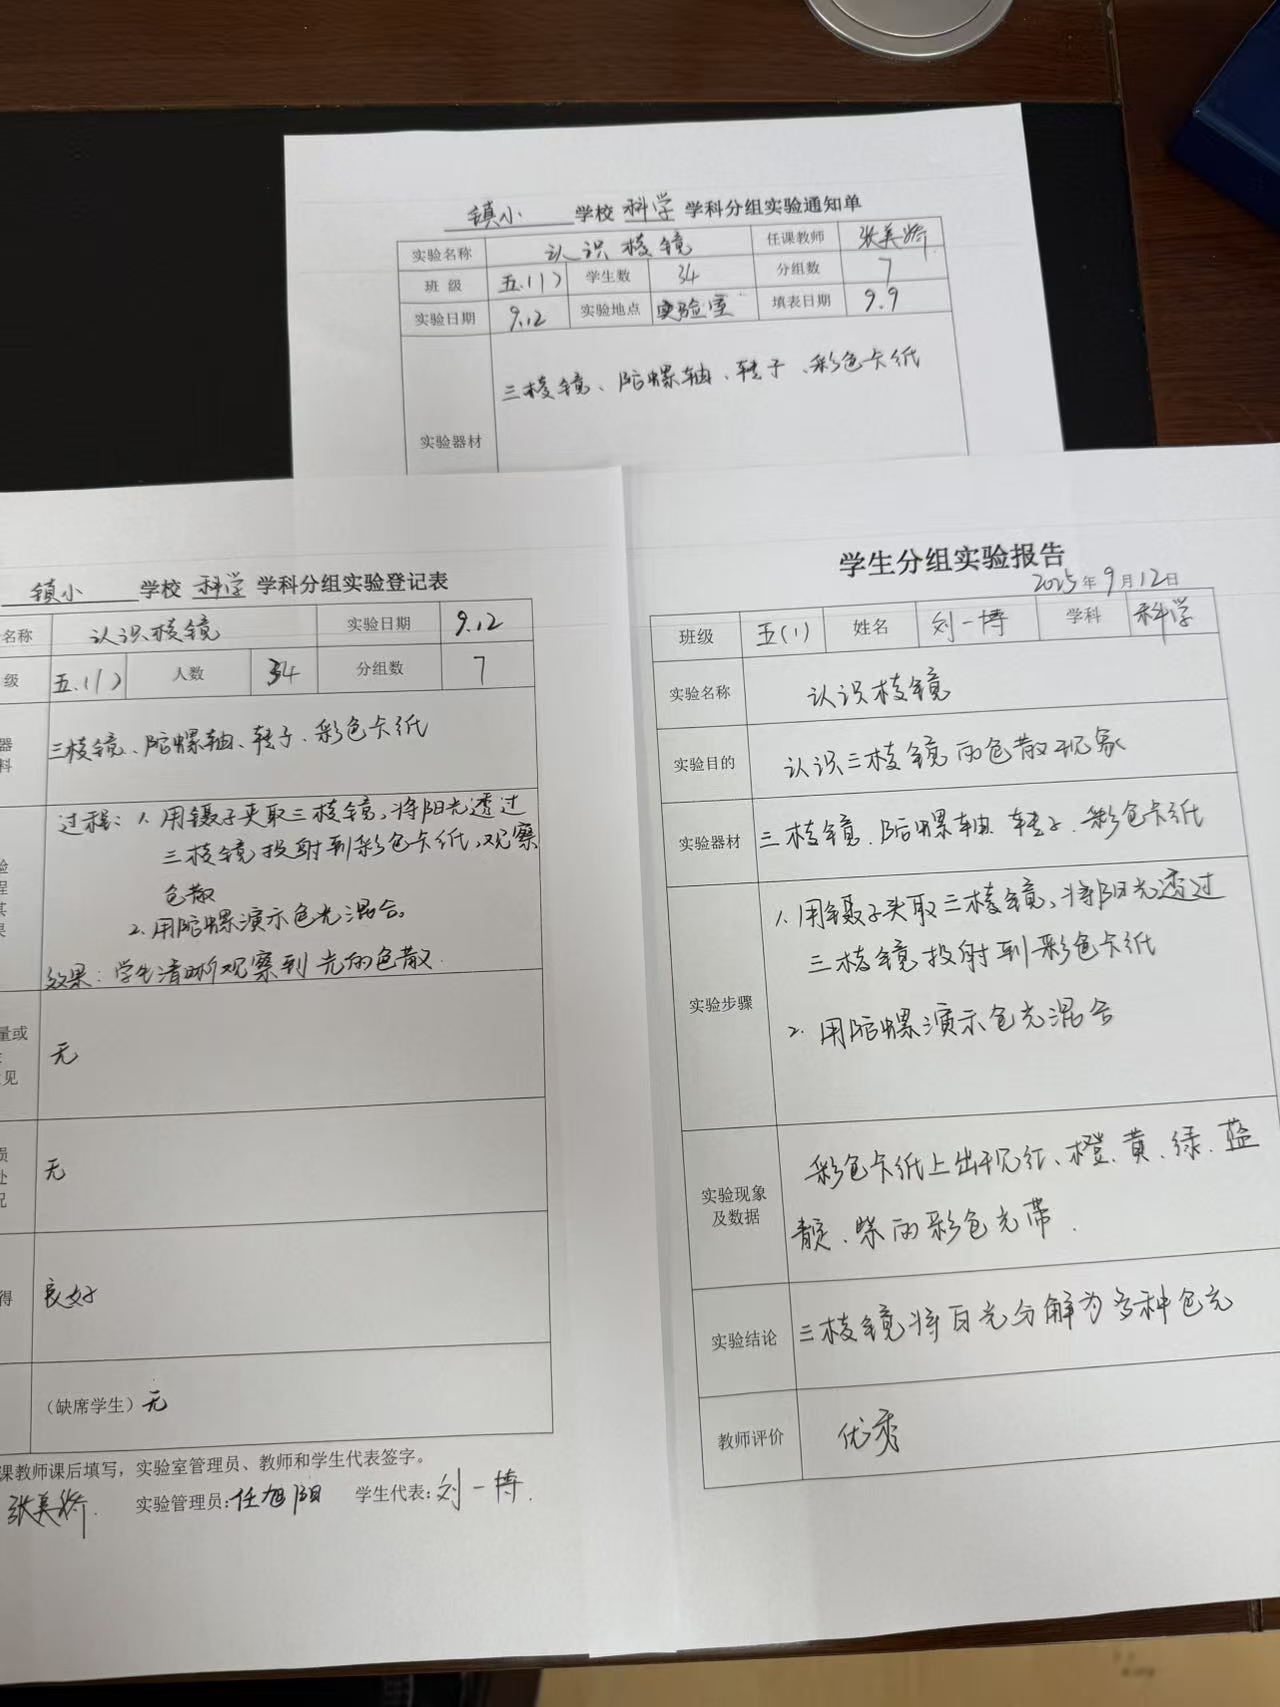 镇小 学校 科学 学科分组实验通知单
实验名称 认识棱镜 任课教师 张美娇
班 级 五.(1) 学生数 34 分组数 7
实验日期 9.12 实验地点 实验室 填表日期 9.9
实验器材 三棱镜、陀螺轴、转子、彩色卡纸
镇小 学校 科学 学科分组实验登记表
名称 认识棱镜 实验日期 9.12
级 五.(1) 人数 34 分组数 7
器
料
三棱镜、陀螺轴、转子、彩色卡纸
过程:1.用镊子夹取三棱镜,将阳光透过
三棱镜投射到彩色卡纸,观察
色散
2.用陀螺演示色光混合。
效果:学生清晰观察到光的色散.
量或
见
无
处
无
得
良好
(缺席学生)无
课教师课后填写,实验室管理员、教师和学生代表签字。
张美娇. 实验管理员:任旭阳 学生代表:刘一博.
学生分组实验报告
2025年9月12日
班级 五(1) 姓名 刘一博 学科 科学
实验名称 认识棱镜
实验目的 认识三棱镜的色散现象
实验器材 三棱镜、陀螺轴、转子、彩色卡纸
实验步骤
1.用镊子夹取三棱镜,将阳光透过
三棱镜投射到彩色卡纸
2.用陀螺演示色光混合
实验现象
及数据
彩色卡纸上出现红、橙、黄、绿、蓝
靛、紫的彩色光带.
实验结论 三棱镜将白光分解为多种色光
教师评价 优秀